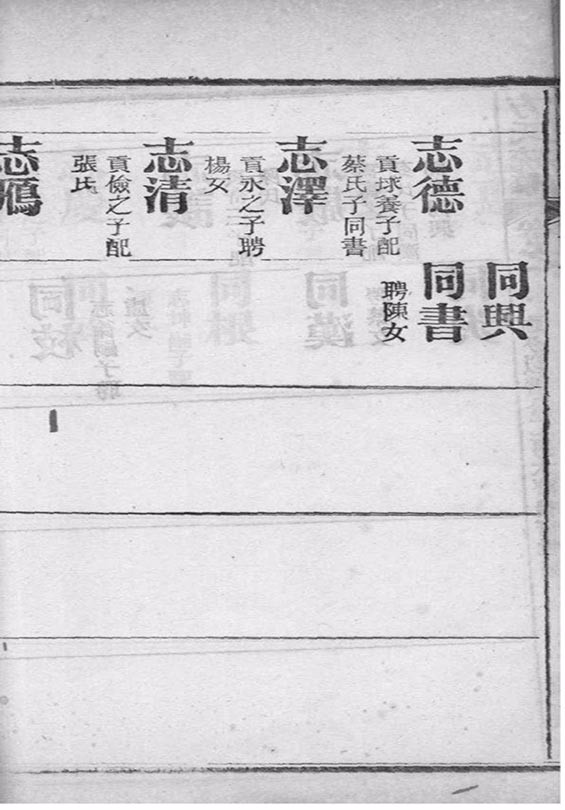 同興
志德
貢球養子配
蔡氏子同書
同書
聘陳女
志澤
貢永之子聘
楊女
志清
貢儉之子配
張氏
志